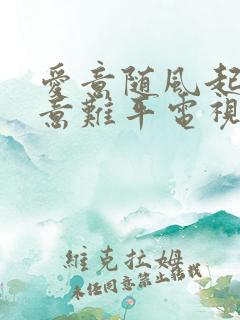 愛意随風起
意難平電視
維克拉姆
未经同意禁止转载